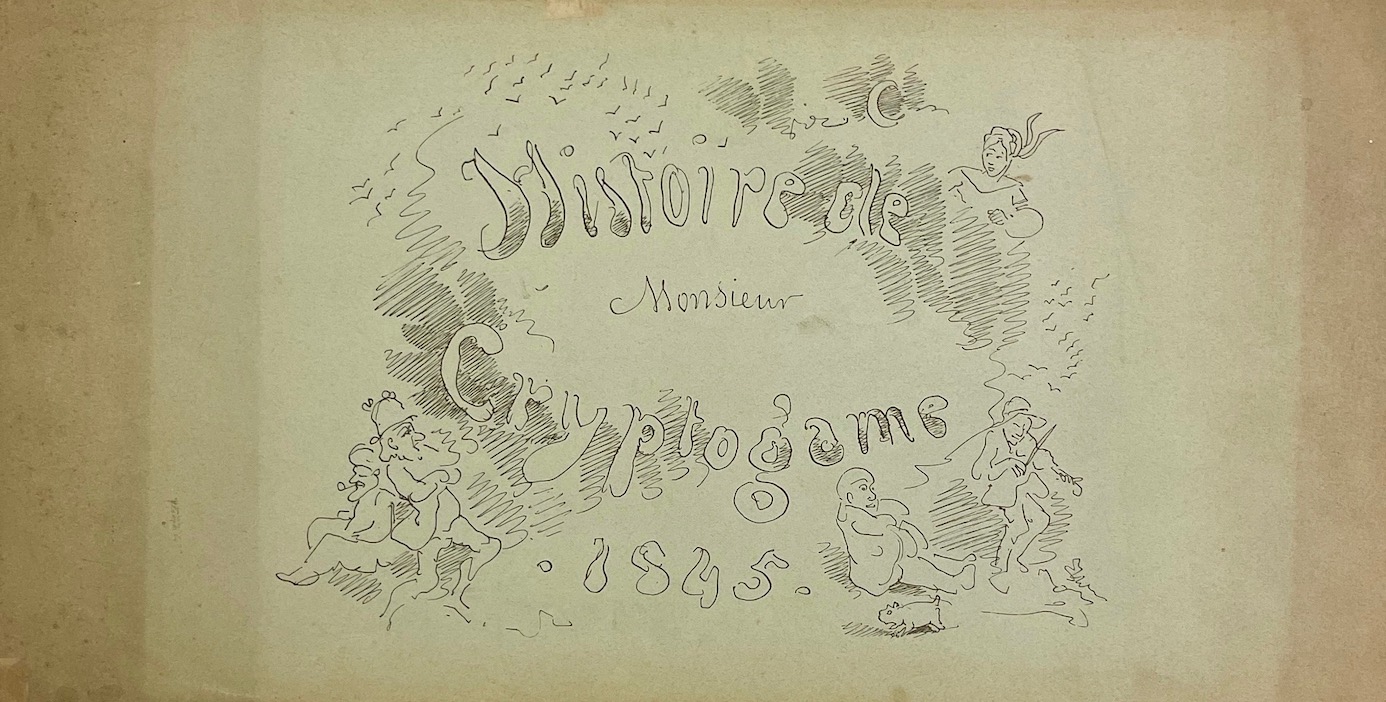 Histoire de
Monsieur
Cryptogame
. 1845.